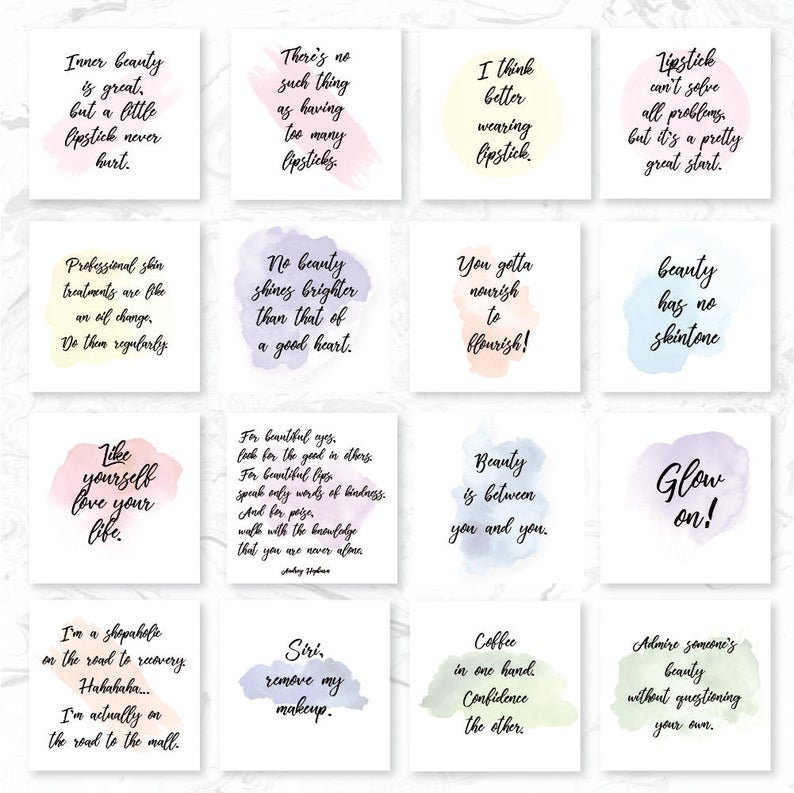 Inner beauty
is great,
but a little
lipstick never
hurt.
There's no
such thing
as having
too many
lipsticks.
I think
better
wearing
lipstick.
Lipstick
can't solve
all problems,
but it's a pretty
great start.
Professional skin
treatments are like
an oil change,
Do them regularly.
No beauty
shines brighter
than that of
a good heart.
You gotta
nourish
to
flourish!
beauty
has no
skintone
Like
yourself
love your
life.
For beautiful eyes,
look for the good in others.
For beautiful lips,
speak only words of kindness.
And for poise,
walk with the knowledge
that you are never alone.
Audrey Hepburn
Beauty
is between
you and you.
Glow
on!
I'm a shopaholic
on the road to recovery.
Hahahaha...
I'm actually on
the road to the mall.
Siri,
remove my
makeup.
Coffee
in one hand.
Confidence
the other.
Admire someone's
beauty
without questioning
your own.